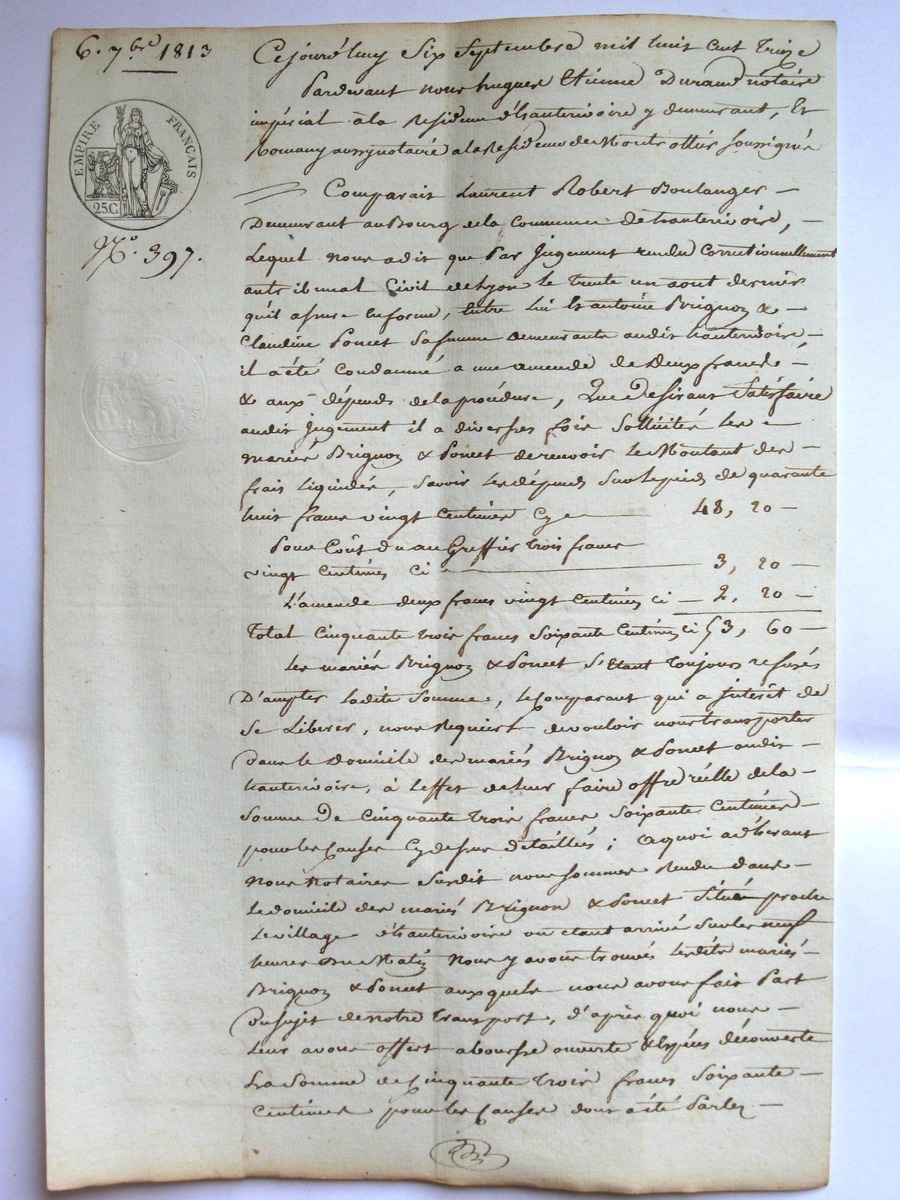 6. 7bre 1813
EMPIRE FRANÇAIS
25C.
N.º 397.
Cejourd'huy Six Septembre mil huit cent treize
Pardevant nous hugues Etienne Durand notaire
impérial à la Residence d'hauterivoire y demeurant, Et
aussy notaire a la Residence de Montrottier soussignés
Comparait Laurent Robert Boulanger —
Demeurant au Bourg de la Commune de hauterivoire, —
Lequel nous a dit que Par Jugement rendu Correctionnellement
au tribunal Civil de Lyon le trente un aout dernier
qu'il assure en forme, Entre Lui Et antoine Brignon &
Claudine Poncet Sa femme demeurants audit hauterivoire —
il a été Condamné a une amende de Deux francs —
& aux dépends de la procédure, Que Desirant Satisfaire
audit Jugement il a diverses fois Sollicités les
mariés Brignon & Poncet de recevoir le Montant des —
frais liquidés, Savoir Les dépends Sur le pied de quarante
huit francs vingt Centimes Cy — 48, 20 —
Pour Coût Du au Greffier trois francs
vingt Centimes Ci — 3, 20 —
L'amende deux francs vingt Centimes ci — 2, 20 —
Total Cinquante trois francs Soixante Centimes ci 53, 60 —
Les mariés Brignon & Poncet S'Etant toujours refusés
D'accepter ladite Somme, le Comparant qui a interêt de
Se Liberer, nous Requiert de vouloir nous transporter
Dans le Domicile des mariés Brignon & Poncet audit —
hauterivoire, à l'effet de leur faire offre réelle de la —
Somme De Cinquante trois francs Soixante Centimes —
pour les Causes Cy dessus détaillées ; a quoi adhérant
Nous Notaires Susdit nous sommes Rendu dans —
Le domicile des mariés Brignon & Poncet Situé proche
Le village d'hauterivoire ou étant arrivé Sur les neuf
heures Du Matin Nous y avons trouvés Lesdits mariés —
Brignon & Poncet auxquels nous avons fait Part
Du Sujet de notre transport, d'après quoi nous —
Leur avons offert a bourse ouverte & Espèces découverte
La Somme de Cinquante trois francs Soixante —
Centimes pour les Causes dont a été Parlez —